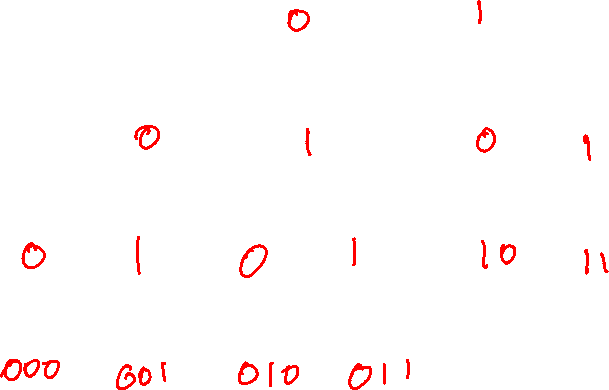 0 1
0 1 0 1
0 1 0 1 10 11
000 001 010 011